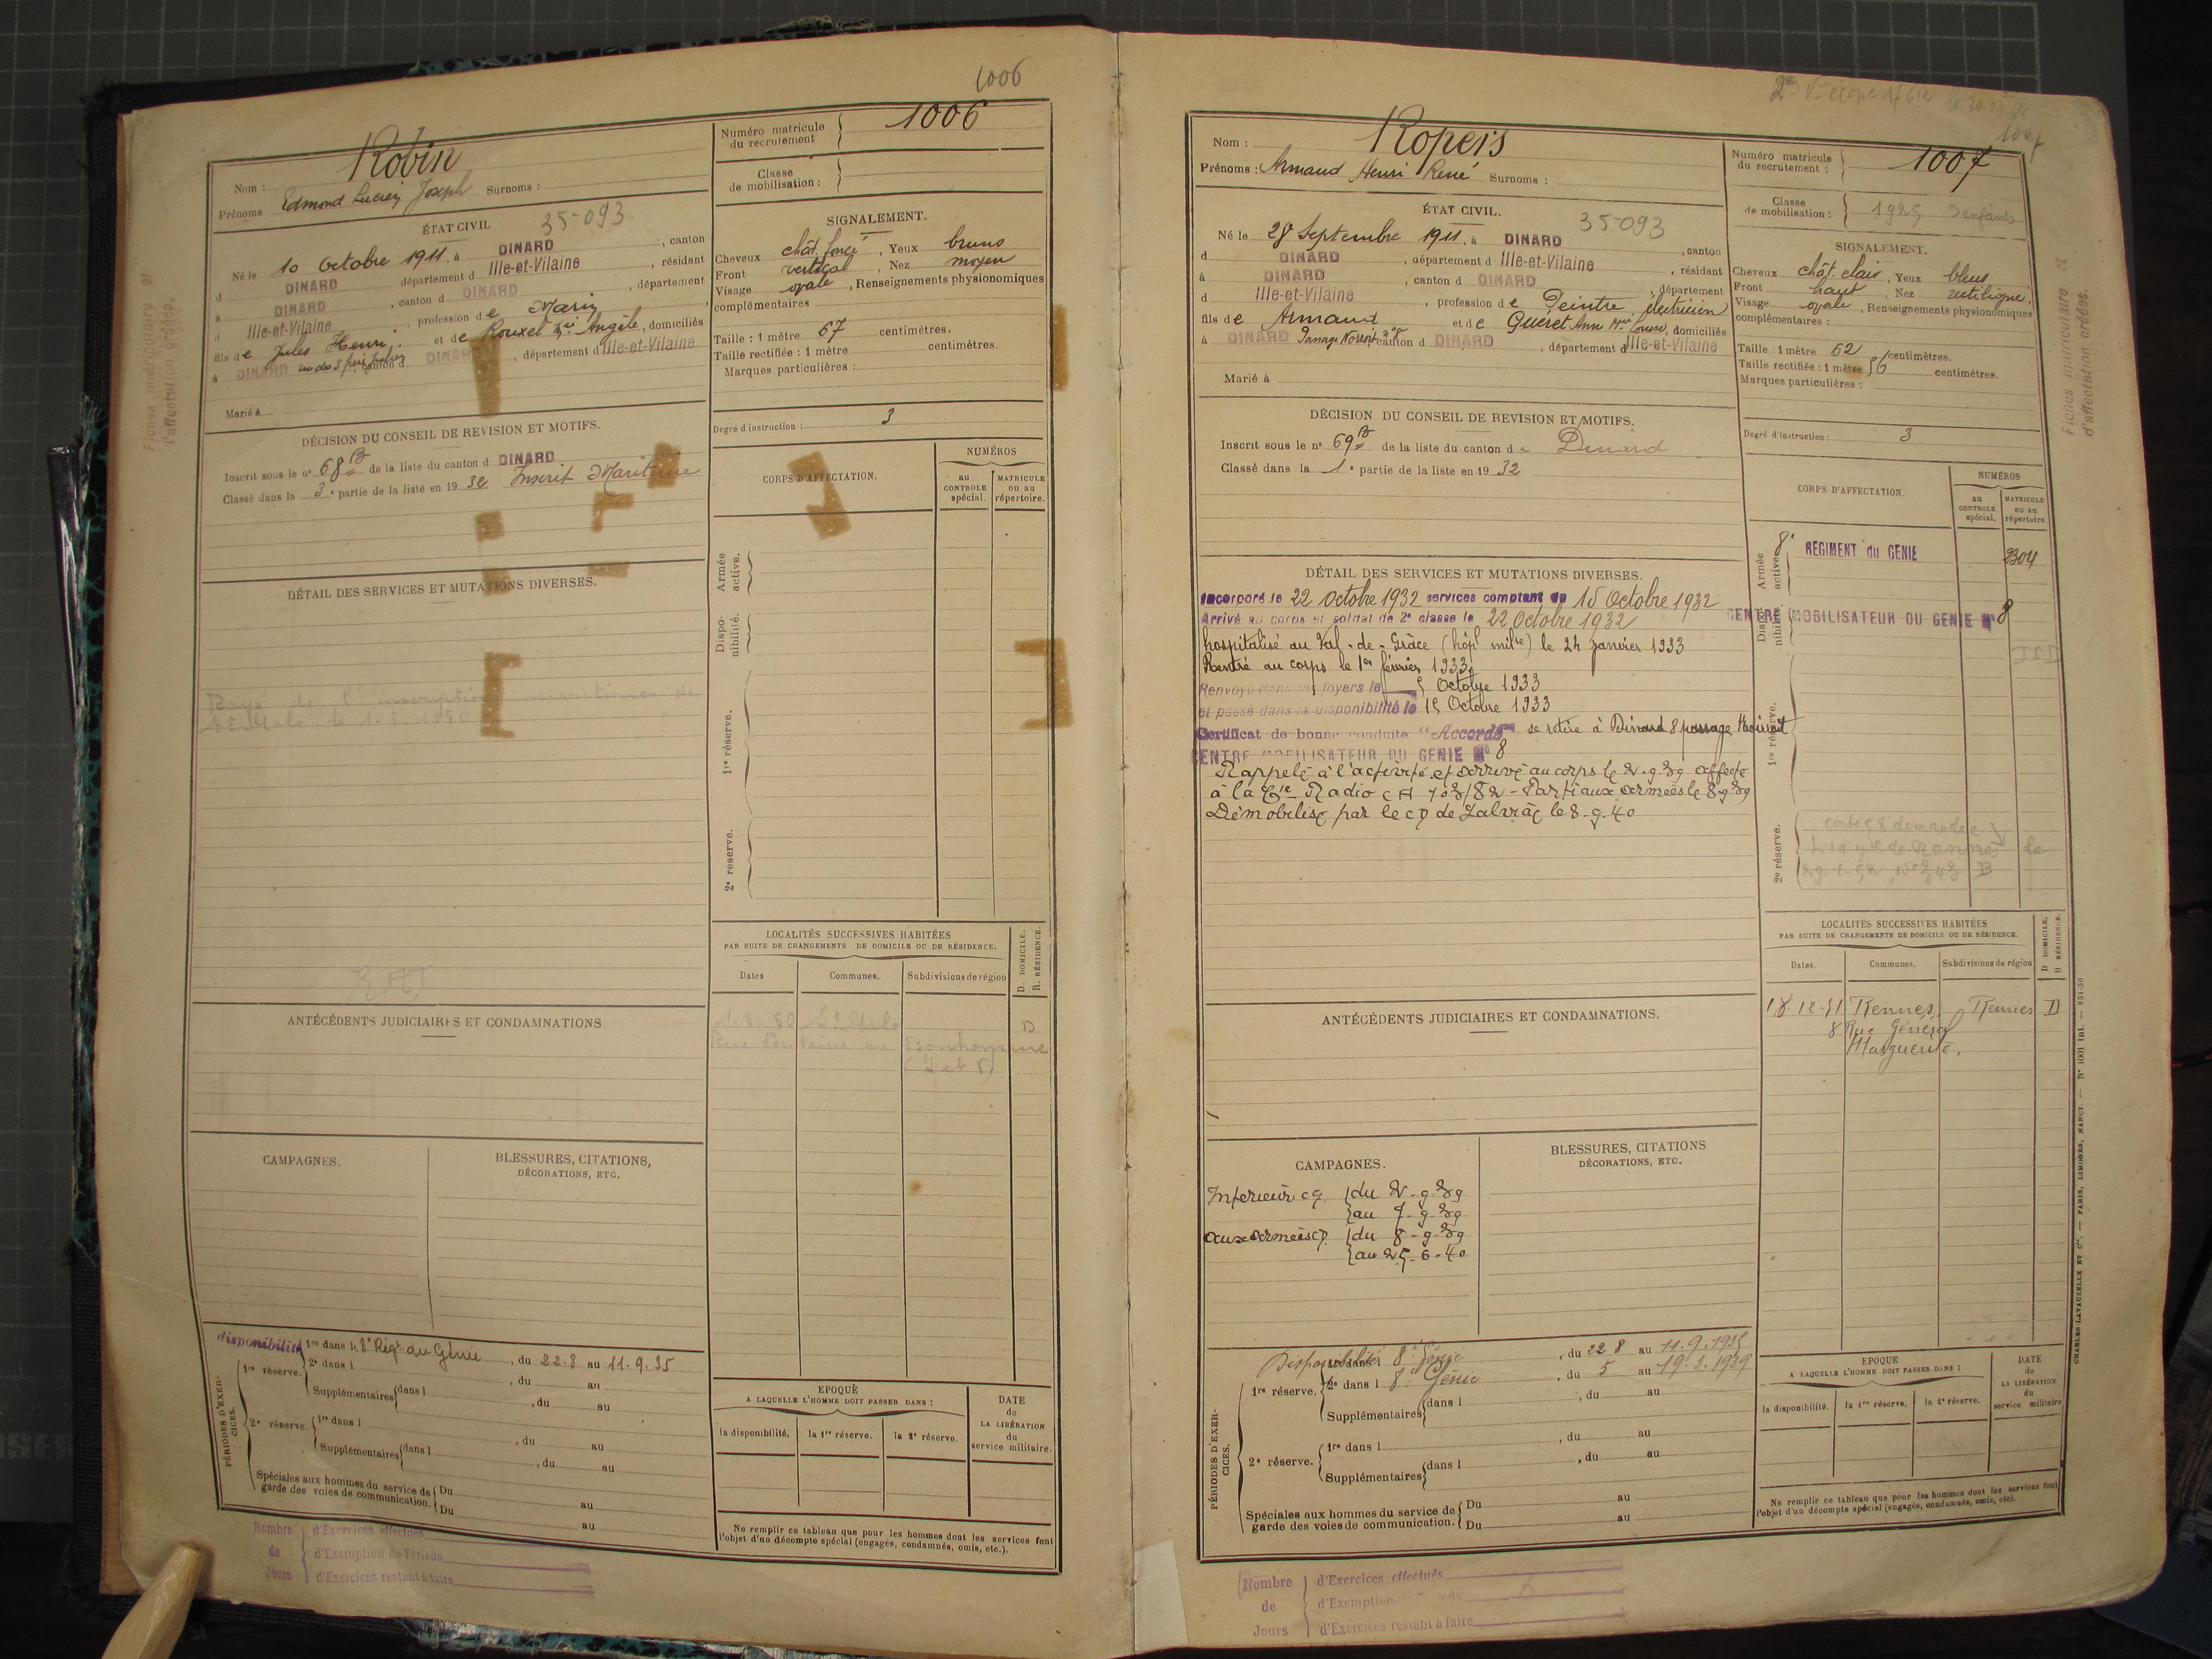 1006
Nom : Robin
Prénoms Edmond Lucien Joseph Surnoms :
Numéro matricule du recrutement 1006
Classe de mobilisation :
ÉTAT CIVIL
35-093
Né le 10 Octobre 1911, à DINARD, canton
d DINARD, département d Ille-et-Vilaine, résidant
à DINARD, canton d DINARD, département
d Ille-et-Vilaine, profession de Marin
fils de Jules Henri et de Rouxel Angèle, domiciliés
à DINARD canton d DINARD, département d Ille-et-Vilaine
Marié à
SIGNALEMENT.
Cheveux chât. foncé, Yeux bruns
Front vertical, Nez moyen
Visage ovale, Renseignements physionomiques
complémentaires
Taille : 1 mètre 67 centimètres.
Taille rectifiée : 1 mètre centimètres.
Marques particulières :
Degré d'instruction : 3
DÉCISION DU CONSEIL DE REVISION ET MOTIFS.
Inscrit sous le n° 68 B de la liste du canton d DINARD
Classé dans la 3e partie de la liste en 1932 Inscrit Maritime
CORPS D'AFFECTATION.
NUMÉROS
au CONTROLE spécial.
MATRICULE ou au répertoire.
Armée active.
Disponibilité.
1re réserve.
2e reserve.
DÉTAIL DES SERVICES ET MUTATIONS DIVERSES.
Rayé de l'inscription maritime de
St Malo, le 1-5-1950
ANTÉCÉDENTS JUDICIAIRES ET CONDAMNATIONS.
LOCALITÉS SUCCESSIVES HABITÉES
PAR SUITE DE CHANGEMENTS DE DOMICILE OU DE RÉSIDENCE.
Dates Communes. Subdivisions de région
D. DOMICILE. R. RÉSIDENCE.
St Malo D
CAMPAGNES.
BLESSURES, CITATIONS,
DÉCORATIONS, ETC.
PÉRIODES D'EXERCICES.
disponibilité
1re réserve. 1re dans l 8e Régt du Génie, du 22.8 au 11.9.35
2e dans l , du au
Supplémentaires dans l , du au
2e réserve. 1re dans l , du au
Supplémentaires dans l , du au
Spéciales aux hommes du service de garde des voies de communication. Du au
Du au
EPOQUE
A LAQUELLE L'HOMME DOIT PASSER DANS :
la disponibilité. la 1re réserve. la 2e réserve.
DATE de LA LIBÉRATION du service militaire.
Ne remplir ce tableau que pour les hommes dont les services font
l'objet d'un décompte spécial (engagés, condamnés, omis, etc.).
Nombre de Jours
d'Exercices effectués
d'Exemption de Période
d'Exercices restant à faire
Fiches matriculaire et
d'affectation créées.
1007
Nom : Ropers
Prénoms : Armand Henri René Surnoms :
Numéro matricule du recrutement : 1007
Classe de mobilisation : 1925 2 enfants
ÉTAT CIVIL.
35-093
Né le 28 Septembre 1911, à DINARD, canton
d DINARD, département d Ille-et-Vilaine, résidant
à DINARD, canton d DINARD, département
d Ille-et-Vilaine, profession de Peintre électricien
fils de Armand et de Guéret Ann Mie Louise, domiciliés
à DINARD canton d DINARD, département d Ille-et-Vilaine
Marié à
SIGNALEMENT.
Cheveux chât. clair, Yeux bleus
Front haut, Nez rectiligne.
Visage ovale, Renseignements physionomiques
complémentaires :
Taille : 1 mètre 62 centimètres.
Taille rectifiée : 1 mètre 56 centimètres.
Marques particulières :
Degré d'instruction : 3
DÉCISION DU CONSEIL DE REVISION ET MOTIFS.
Inscrit sous le n° 69 B de la liste du canton de Dinard
Classé dans la 1e partie de la liste en 1932
CORPS D'AFFECTATION.
NUMÉROS
au CONTROLE spécial.
MATRICULE ou au répertoire.
Armée active. 8e REGIMENT du GENIE 2304
Disponibilité. CENTRE MOBILISATEUR DU GENIE N° 8
1re réserve.
2e réserve.
DÉTAIL DES SERVICES ET MUTATIONS DIVERSES.
Incorporé le 22 Octobre 1932 services comptant du 15 Octobre 1932
Arrivé au corps et soldat de 2e classe le 22 Octobre 1932
hospitalisé au Val-de-Grâce (hôpl milre) le 24 Janvier 1933
Rentré au corps le 1er février 1933.
Renvoyé dans ses foyers le 5 Octobre 1933
et passé dans la disponibilité le 15 Octobre 1933
Certificat de bonne conduite "Accordé" se retire à Dinard 8 passage
CENTRE MOBILISATEUR DU GENIE N° 8
Rappelé à l'activité et arrivé au corps le 2-9-39 affecté
à la Cie Radio Parti aux armées le 8-9-39
Démobilisé par le de le 8-9-40
ANTÉCÉDENTS JUDICIAIRES ET CONDAMNATIONS.
LOCALITÉS SUCCESSIVES HABITÉES
PAR SUITE DE CHANGEMENTS DE DOMICILE OU DE RÉSIDENCE.
Dates. Communes. Subdivisions de région
D. DOMICILE. R RÉSIDENCE.
18-12-51 Rennes Rennes D
8 Rue Général
Marguerite.
CAMPAGNES.
Intérieur c9. du 2-9-39
au 7-9-39
aux armées du 8-9-39
au 25-6-40
BLESSURES, CITATIONS
DÉCORATIONS, ETC.
PÉRIODES D'EXERCICES.
Disponibilité
1re réserve. 1re dans l 8e Génie, du 22 8 au 11.9.1935
2e dans l 8e Génie, du 5 au 19.2.1939
Supplémentaires dans l , du au
2e réserve. 1re dans l , du au
Supplémentaires dans l , du au
Spéciales aux hommes du service de garde des voies de communication. Du au
Du au
EPOQUE
A LAQUELLE L'HOMME DOIT PASSER DANS :
la disponibilité. la 1re réserve. la 2e réserve.
DATE de LA LIBÉRATION du service militaire
Ne remplir ce tableau que pour les hommes dont les services font
l'objet d'un décompte spécial (engagés, condamnés, omis, etc).
Nombre de Jours
d'Exercices effectués
d'Exemption
d'Exercices restant à faire
Fiches matriculaire et
d'affectation créées.
CHARLES-LAVAUZELLE ET Cie. — PARIS, LIMOGES, NANCY. — N° 1001 int. — 831-30